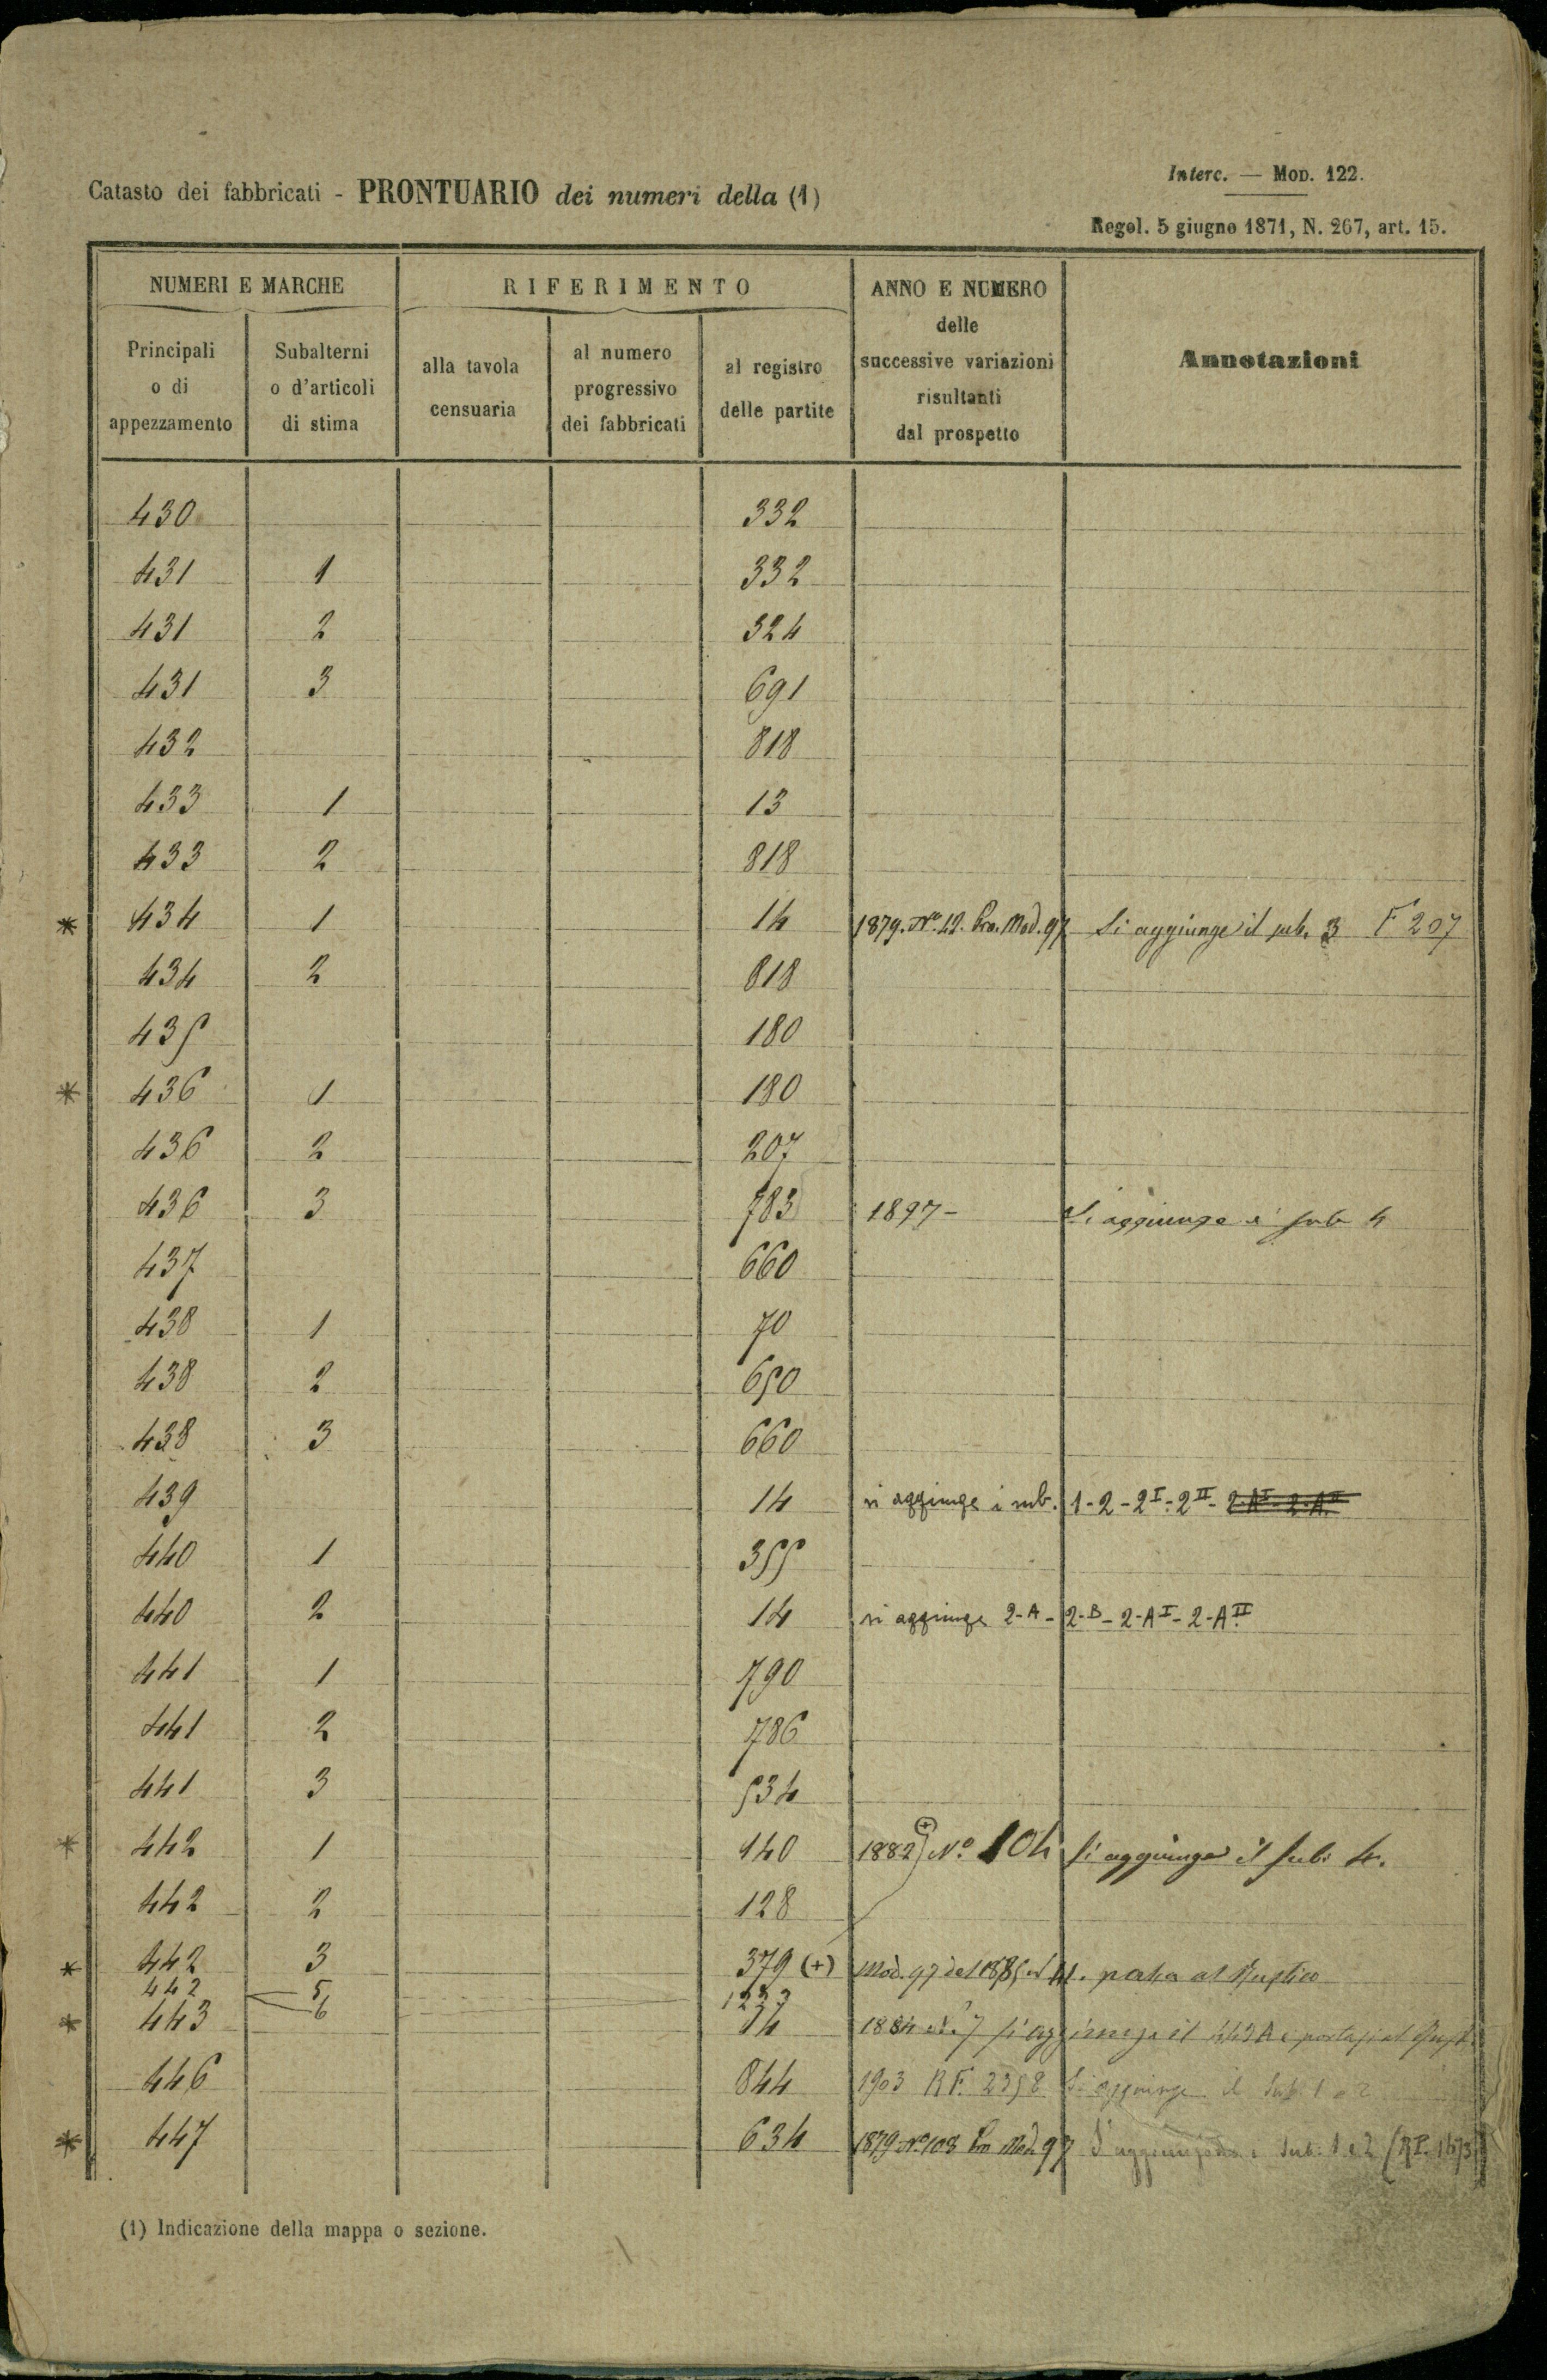 Interc. — Mod. 122.
Catasto dei fabbricati - PRONTUARIO dei numeri della (1)
Regol. 5 giugno 1871, N. 267, art. 15.
NUMERI E MARCHE
RIFERIMENTO
ANNO E NUMERO
delle
successive variazioni
risultanti
dal prospetto
Annotazioni
Principali
o di
appezzamento
Subalterni
o d'articoli
di stima
alla tavola
censuaria
al numero
progressivo
dei fabbricati
al registro
delle partite
430 332
431 1 332
431 2 324
431 3 691
432 818
433 1 13
433 2 818
* 434 1 14 1879. No. 42. Pro. Mod. 97 Si aggiunge il sub. 3 F 207
434 2 818
435 180
* 436 1 180
436 2 207
436 3 783 1897- Si aggiunge il sub 4
437 660
438 1 70
438 2 650
438 3 660
439 14 si aggiunge i sub. 1-2-2I-2II- 2-AI-2-AII
440 1 355
440 2 14 si aggiunge 2-A-2-B-2-AI-2-AII
441 1 790
441 2 786
441 3 534
* 442 1 140 1882 (+) No. 104 Si aggiunge il sub: 4.
442 2 128
* 442 3 379 (+) Mod. 97 del 1885 passa al Rustico
442 5 1237
6
* 443 14 1884 7 si aggiunge il 443A e
446 844 1903 RF. 2358 Si aggiunge il Sub. 1 e 2
* 447 634 1879 No. 108 Pro Mod. 97 S'aggiungono i Sub. 1 e 2
(1) Indicazione della mappa o sezione.